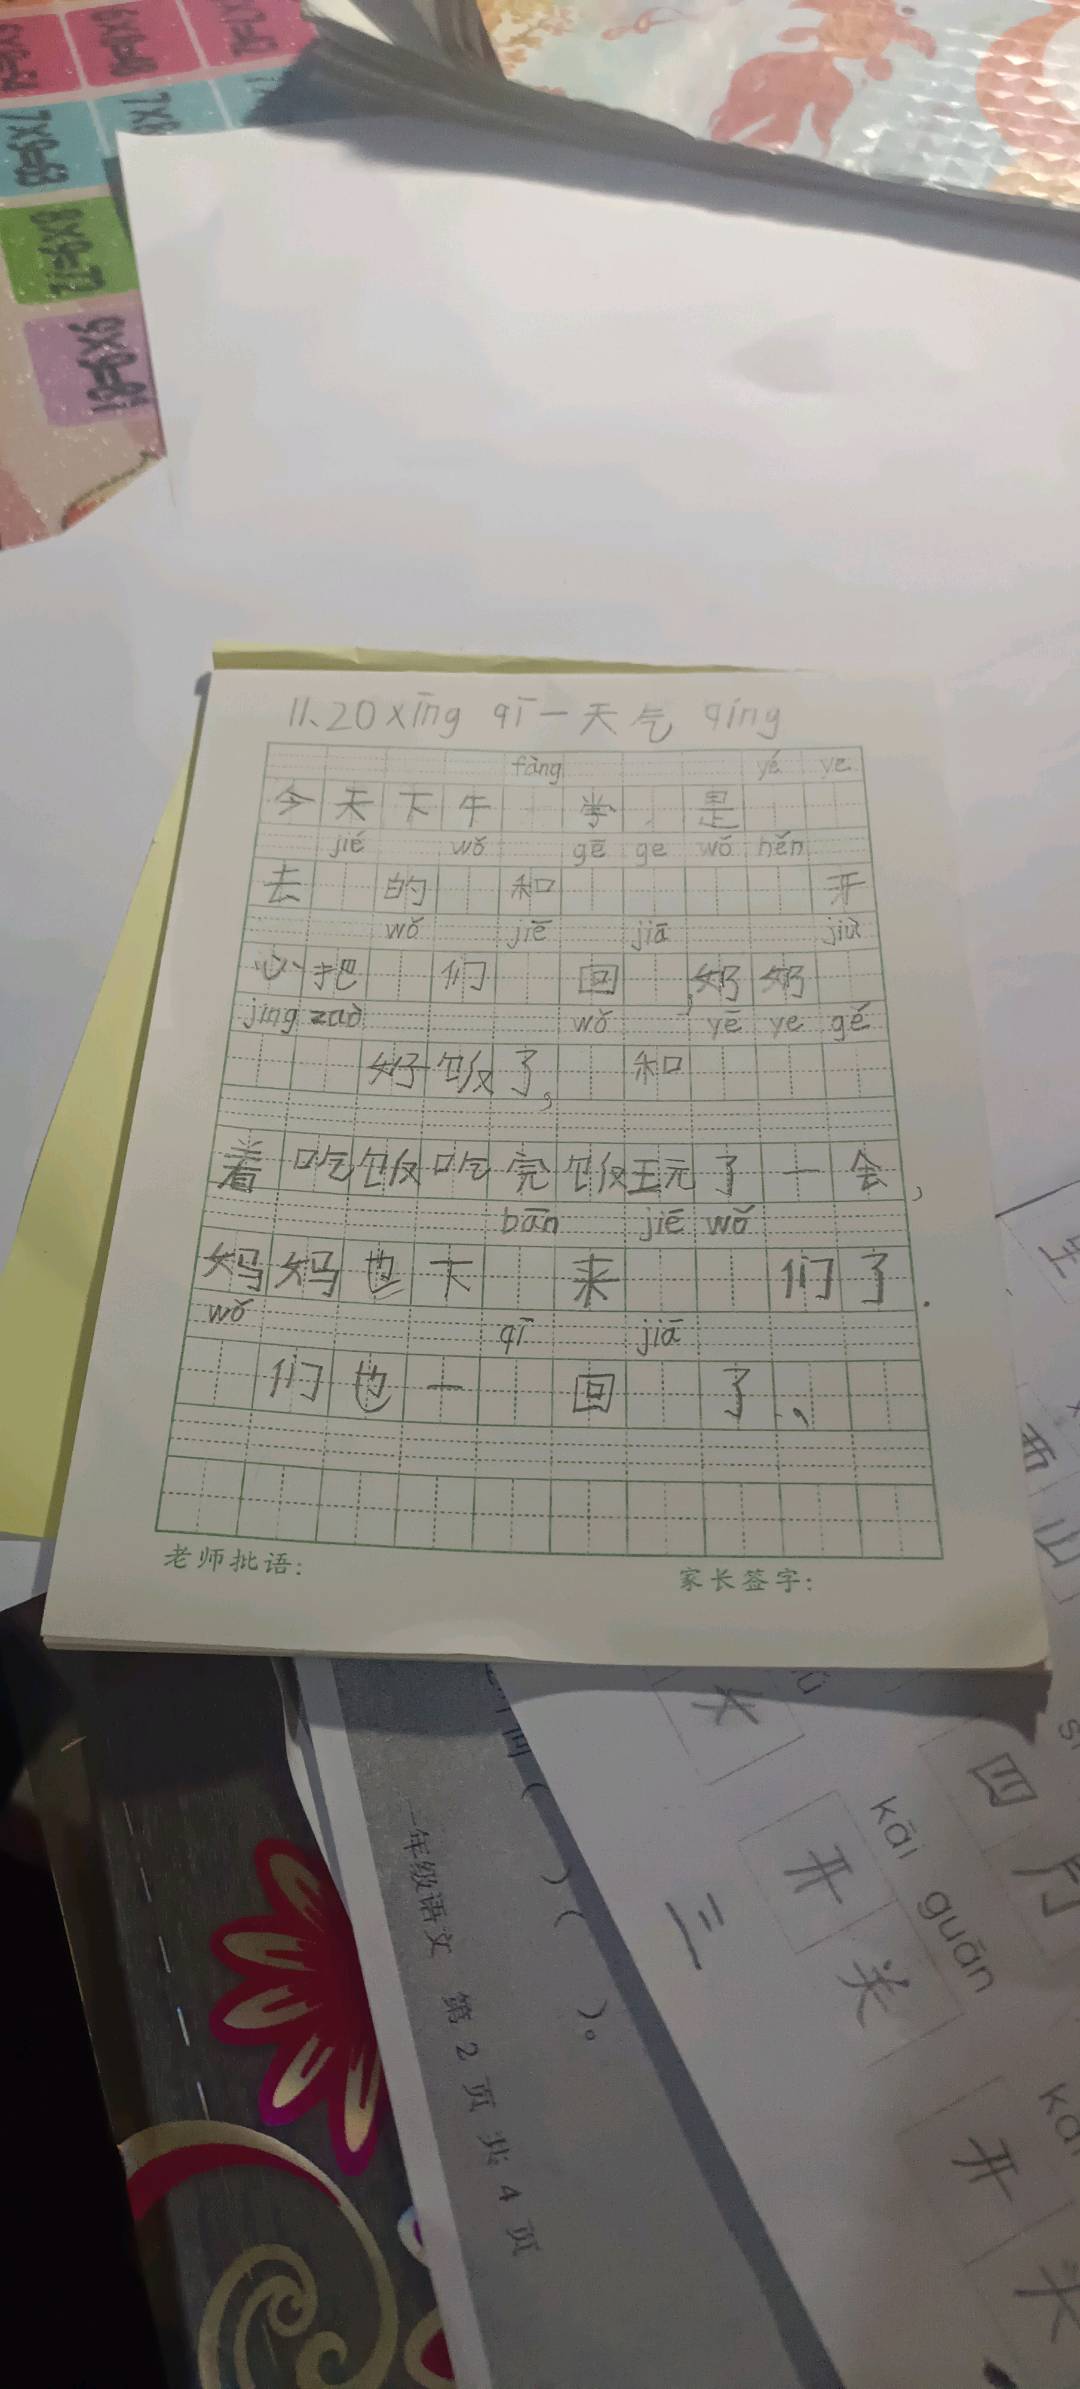 11.20 xīng qī一天气 qíng
fàng yé ye
今天下午 学 是
jiē wǒ gē ge wǒ hěn
去 的 和 开
wǒ jiē jiā jiù
心把 们 回 ,奶奶
jing zaò wǒ yē ye gé
好饭了, 和
着吃饭吃完饭玩了一会,
bān jiē wǒ
妈妈也下 来 们了.
wǒ qī jiā
们也一 回 了、
老师批语:
家长签字:
一年级语文 第 2 页 共 4 页
( ) ( )。
kāi guān
开关
三
四
开
山
西